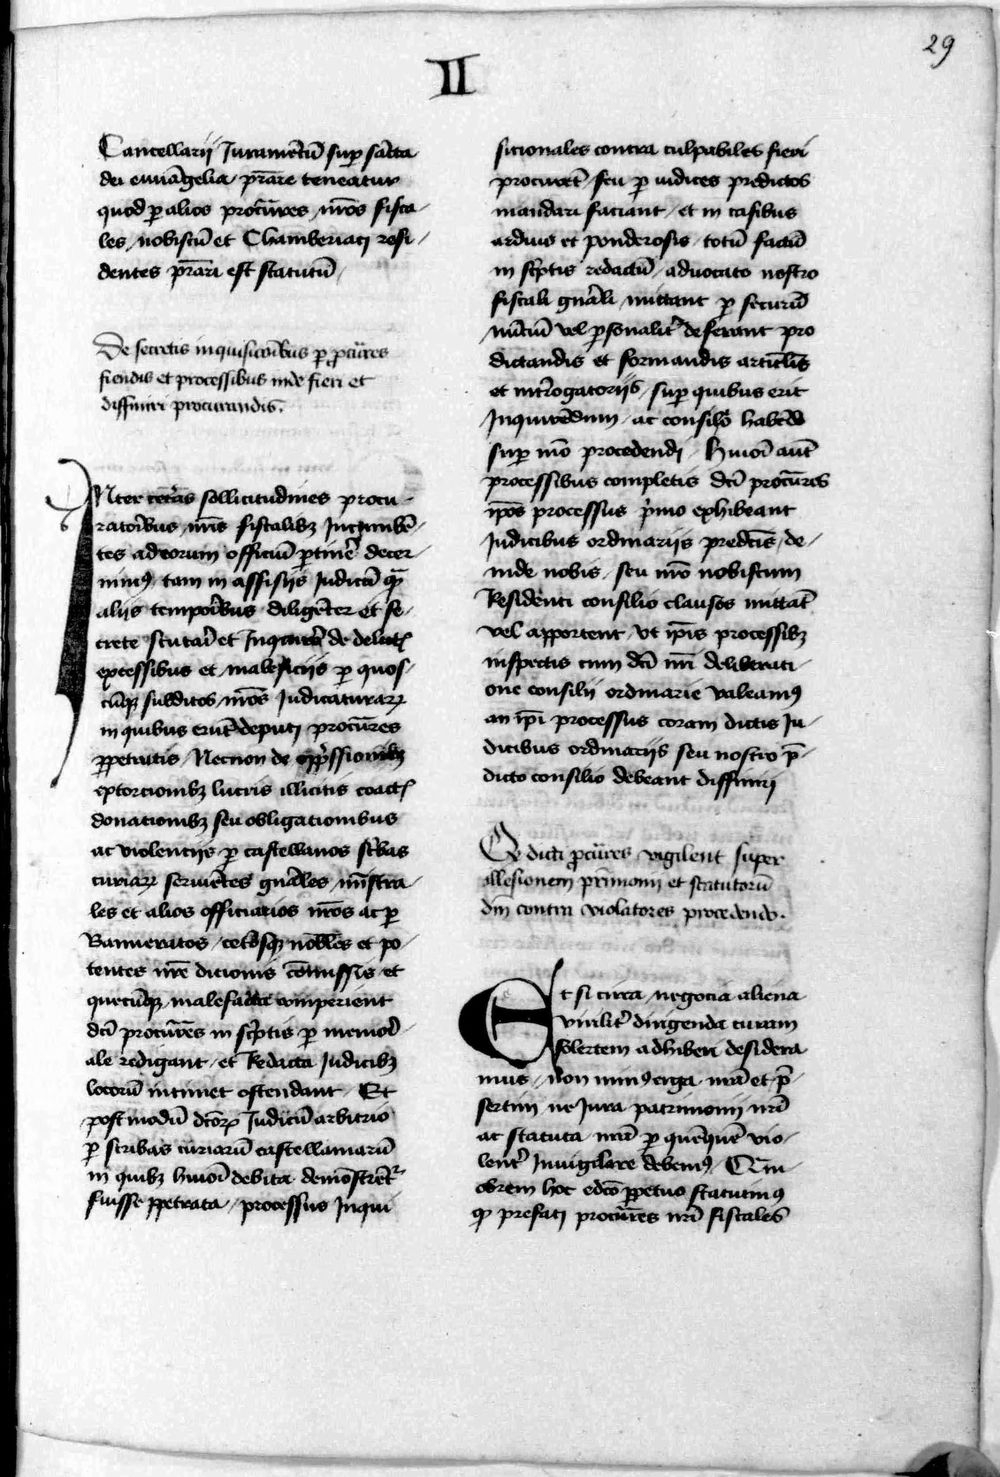 29
II
Cancellarii Juramētū sup̄ sācta
dei euuāgelia p̄rare teneatur
quod p̄ alios procūres nr̄os fisca-
les nobiscū et Chamberiaci resi-
dentes p̄rari est statutū
De secretis inquisicoībus p̄ p̄cūres
fiendis et processibus inde fieri et
diffiniri procurandis.
INter cetēas sollicitudines procu-
ratoībus nr̄is fiscalibꝫ Incumbē-
tes ad eorum officiū p̄tinēr decer-
nimꝰ tam in assisiis Judicū qm̄
aliis tempoībus diligēter et se-
crete scrutari et Inquirēr de delictꝭ
excessibus et maleficiis p̄ quos-
cūqꝫ subditos nr̄os Judicaturaꝝ
in quibus erūt deputi procūres
ꝑpetratis Necnon de opp̄ssionibꝫ
extorcionibꝫ lucris illicitis coactꝭ
donationibꝫ seu obligationibus
ac violenciis p̄ castellanos sc̄bas
curiaꝝ seruiētes gn̄ales mīstra-
les et alios officiarios nr̄os ac p̄
Banneratos cetōsqꝫ nōbles et po-
tentes nr̄e dicionis cōmissis et
quecūqꝫ malefacta comperient
dc̄i procūres in sc̄ptis p̄ memoī-
ale redigant et Redacta Judicibꝫ
locorū intimet ostendant Et
post modū dc̄oꝝ Judicū arbitrio
p̄ scribas curiarū castellaniarū
in quibꝫ hmoī debita demōstrētr
fuisse ꝑpetrata processus Inqui
sicionales contra culpabiles fieri
procuret seu p̄ iudices predictos
mandari faciant et in casibus
arduis et ponderosis totū factū
in sc̄ptis redactū aduocato nostro
fiscali gn̄ali mittant p̄ securū
nūciū vel p̄sonalitr̄ deferant pro
dictandis et formandis articulis
et int̄rogatoriis sup̄ quibus erit
Inquirēdum ac consilio habēdo
sup̄ mō procedendi Hmoī aut̄
processibus completis dc̄i procūres
ip̄os processus p̄mo exhibeant
Judicibus ordinariis predcīs de-
inde nobis seu nr̄o nobiscum
Residenti consilio clausos mittāt
vel apportent vt ip̄is processibꝫ
inspectis cum dc̄i nr̄i deliberati-
one consilii ordinarie valeamꝰ
an ip̄i processus coram dictis Ju-
dicibus ordinariis seu nostro p̄-
dicto consilio debeant diffiniri
Qꝫ dicti p̄cūres vigilent super
illesionem p̄rimonii et statutorū
dn̄i contra violatores procedendo.
Et si circa negocia aliena
virilitr̄ dirigenda curam
solertem adhiberi desidera
mus Non minꝰ erga nr̄a et p̄-
sertim ne Jura patrimonii nr̄i
ac statuta nr̄a p̄ quēquē vio-
lentr̄ Inuigilare debemꝰ Quā-
obrem hoc edc̄o ꝑpetuo statuimꝰ
qꝫ prefati procūres nr̄i fiscales